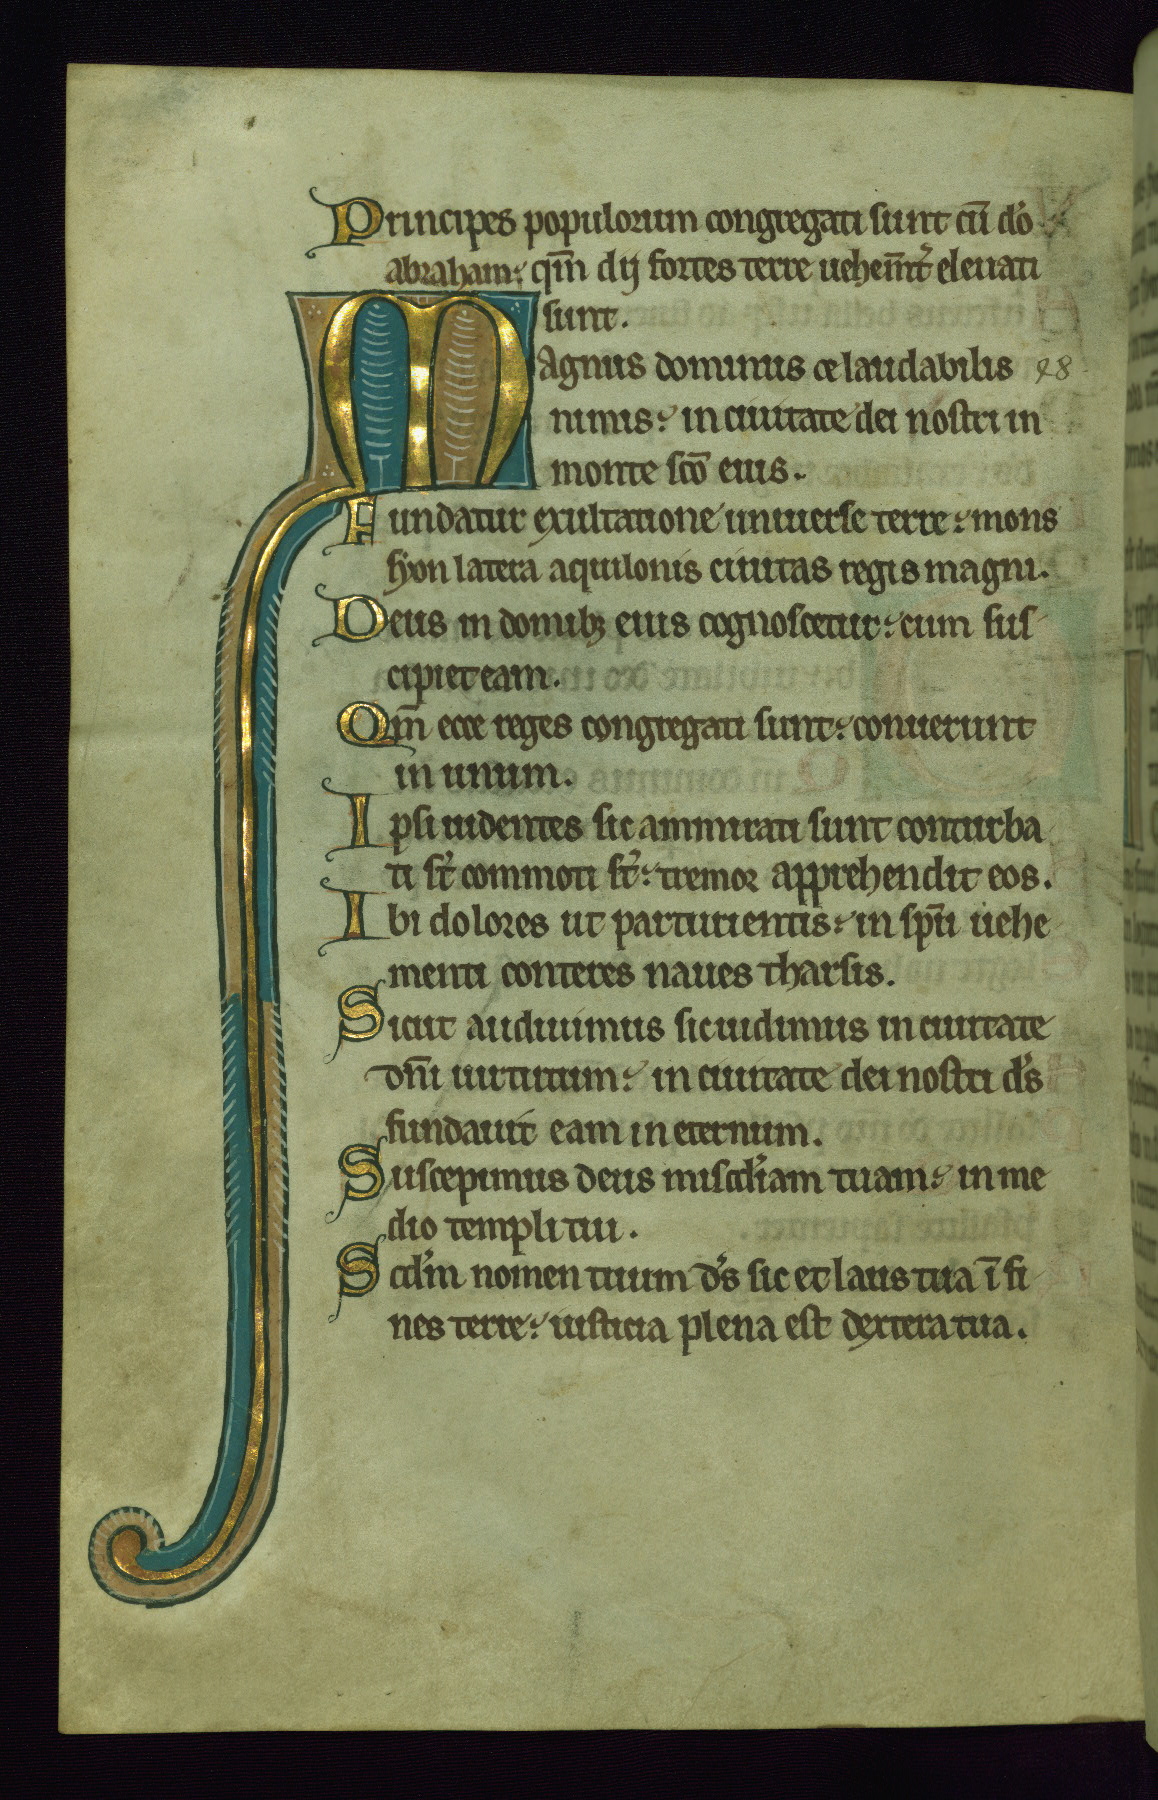 Principes populorum congregati sunt cū do
abraham: qm̄ dij fortes terre uehem̄t eleuati
sunt.
Magnus dominus & laudabilis 48
nimis: in ciuitate dei nostri in
monte scō eius.
Fundatur exultatione uniuerse terre: mons
syon latera aquilonis ciuitas regis magni.
Deus in domibꝫ eius cognoscetur: cum sus
cipiet eam.
Qm̄ ecce reges congregati sunt: conuerunt
in unum.
Ipsi uidentes sic ammirati sunt conturba
ti st̄ commoti st̄: tremor apprehendit eos.
Ibi dolores ut parturientis: in sp̄u uehe
menti conteres naues tharsis.
Sicut audiuimus sic uidimus in ciuitate
dn̄i uirtutum: in ciuitate dei nostri ds
fundauit eam in eternum.
Suscepimus deus miscdiam tuam: in me
dio templi tui.
Scdm nomen tuum ds sic et laus tua ī fi
nes terre: iusticia plena est dextera tua.